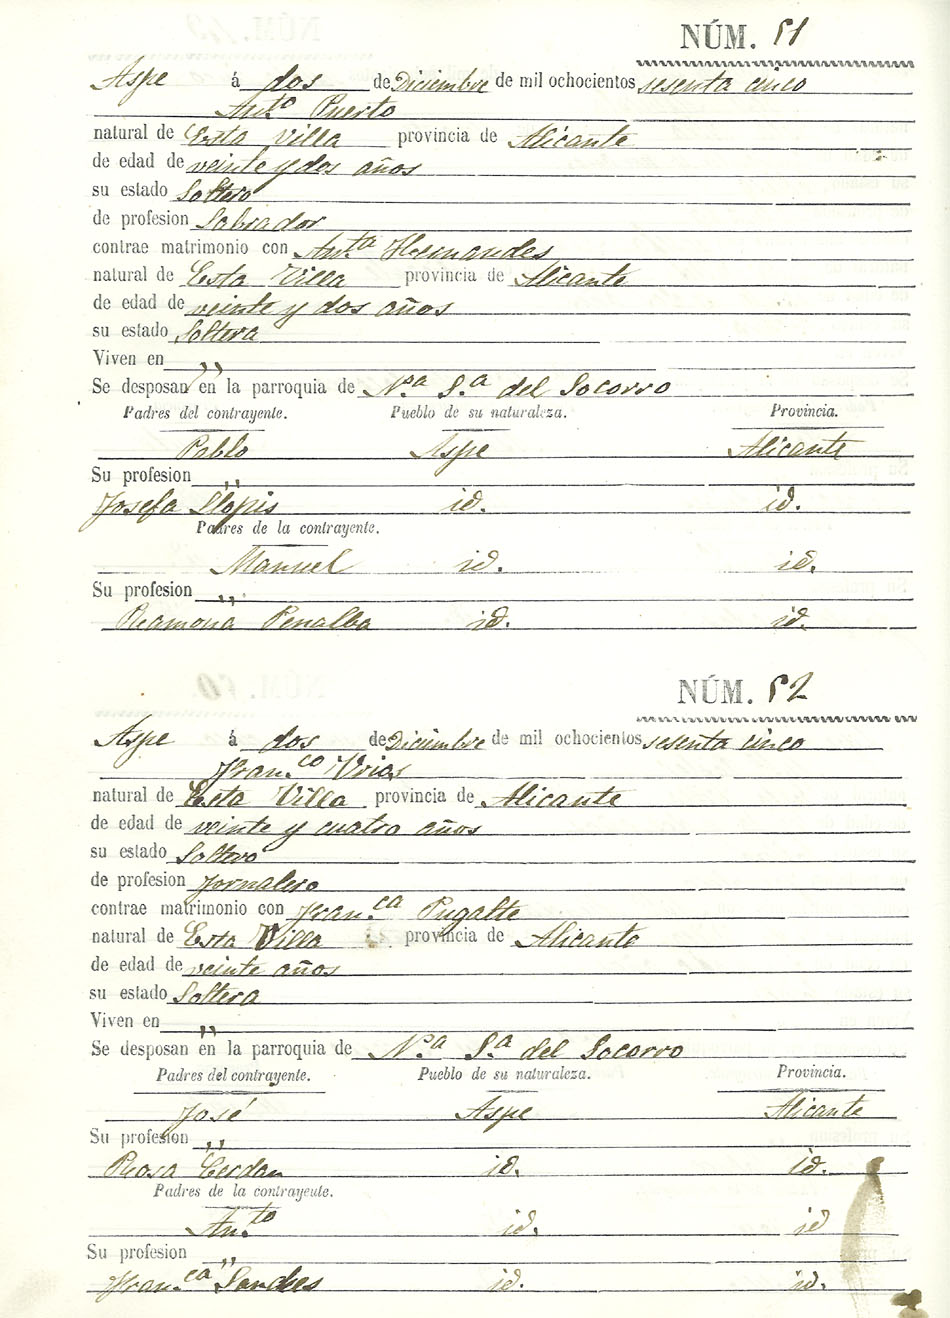 NÚM. 51
Aspe á dos de Diciembre de mil ochocientos sesenta cinco
Ant.º Puerto
natural de Esta Villa provincia de Alicante
de edad de veinte y dos años
su estado Soltero
de profesion Labrador
contrae matrimonio con Ant.ª Hernandes
natural de Esta Villa provincia de Alicante
de edad de veinte y dos años
su estado Soltera
Viven en ,,
Se desposan en la parroquia de N.ª S.ª del Socorro
Padres del contrayente. Pueblo de su naturaleza. Provincia.
Pablo Aspe Alicante
Su profesion ,,
Josefa Llopis id. id.
Padres de la contrayente.
Manuel id. id.
Su profesion ,,
Ramona Penalba id. id.
NÚM. 52
Aspe á dos de Diciembre de mil ochocientos sesenta cinco
Fran.co Urios
natural de Esta Villa provincia de Alicante
de edad de veinte y cuatro años
su estado Soltero
de profesion Jornalero
contrae matrimonio con Fran.ca Pugalte
natural de Esta Villa provincia de Alicante
de edad de veinte años
su estado Soltera
Viven en ,,
Se desposan en la parroquia de N.ª S.ª del Socorro
Padres del contrayente. Pueblo de su naturaleza. Provincia.
José Aspe Alicante
Su profesion ,,
Rosa Cerdan id. id.
Padres de la contrayente.
An.to id. id
Su profesion ,,
Fran.ca Sanches id. id.